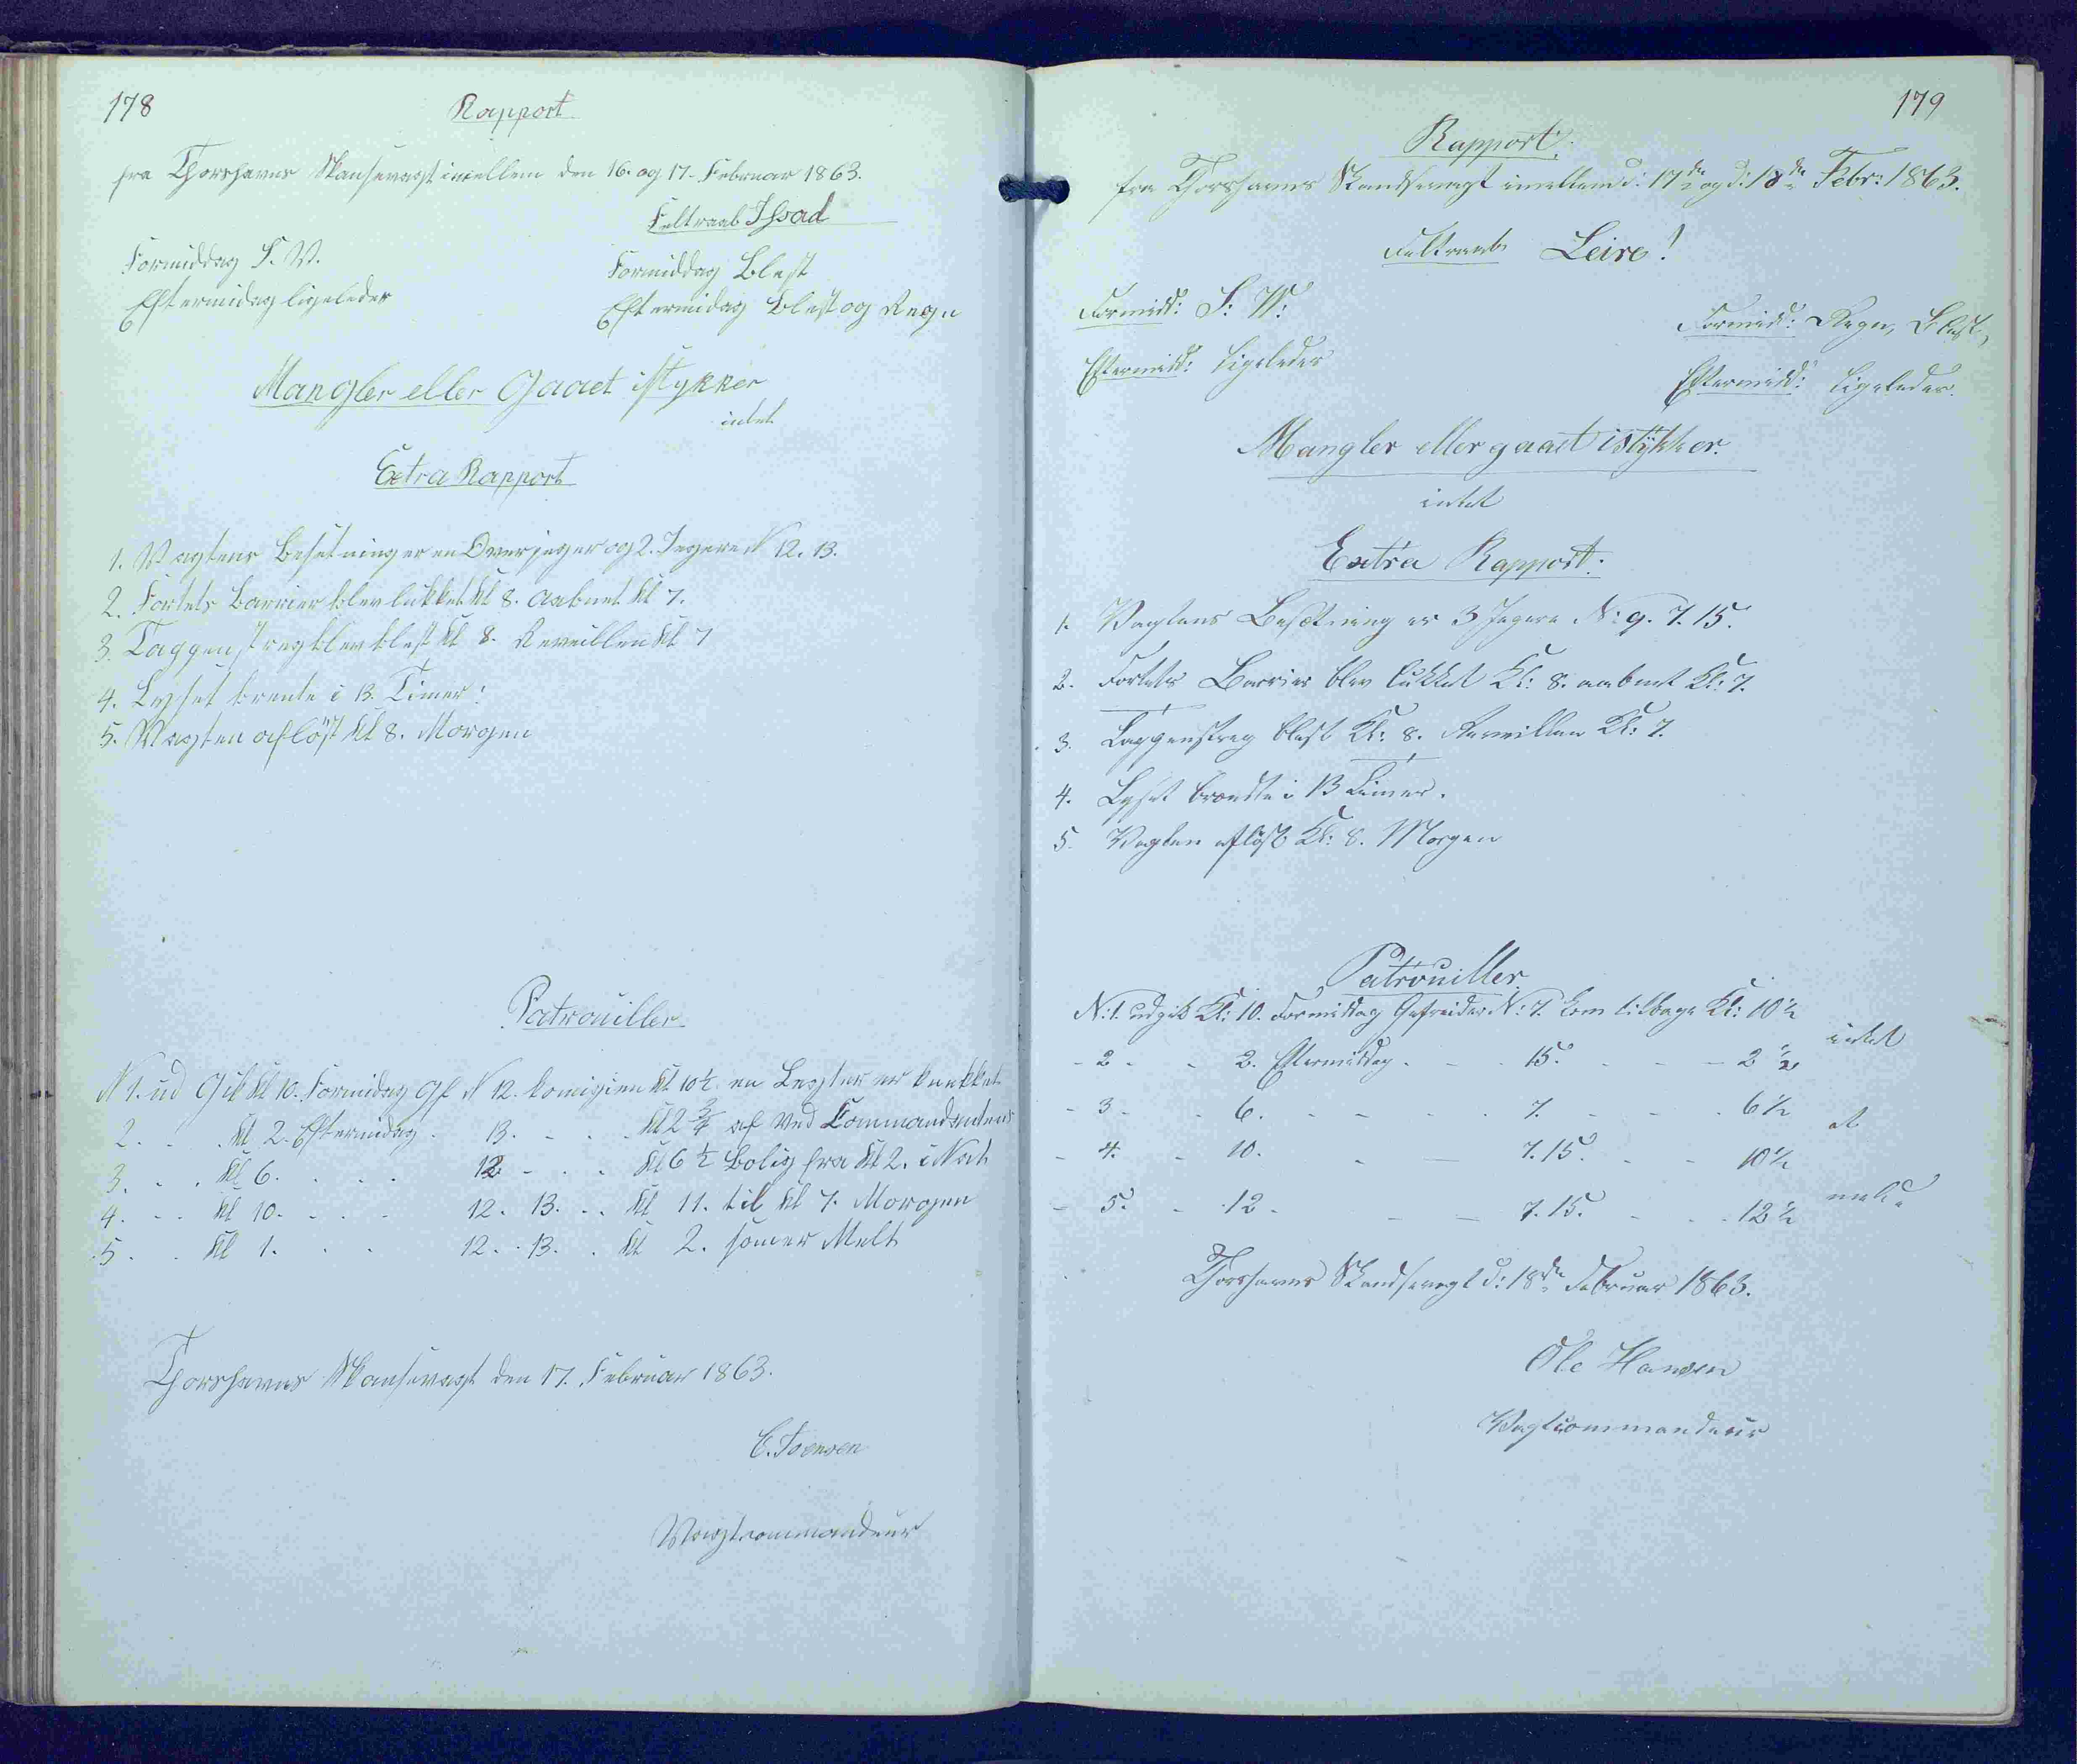 178
Rapport
fra Thorshavns Skansevagt imellem den 16. og 17. Februar 1863.
Feltraab Ihsad
Formiddag S. V.
Formiddag Blest
Eftermidag ligeledes
Eftermidag Blest og Regn
Mangler eller Gaaet i stykker
intet
Extra Rapport
1. Vagtens Besetning er en Overjeger og 2. Jegere N 12. 13.
2. Fortets Barrier blev lukket Kl 8. Aabnet Kl 7.
3. Taggenstreg blev blest Kl 8. Reveillen Kl 7
4. Lyset brente i 13. Timer:
5. Vagten aflöst Kl 8. Morgen
Patrouiller
N 1. ud Gik Kl 10. Formidag Gf N 12. kom igien Kl 10½ en Legter er knekket
2. . . Kl 2. Eftermidag . 13. - . . Kl 2 3/4 af Ved Commandantens
3. . . Kl 6. . . . . 12. - . . Kl 6 ½ Bolig fra Kl 2. i Nat
4. - - Kl 10. - . . . 12. 13. . . Kl 11. til Kl 7. Morgen
5 . . Kl 1. . . . 12. . 13. . Kl 2. Melt
Thorshavns Skansevagt den 17. Februar 1863.
C. Joensen
Vagtcommandeur
179
Rapport.
fra Thorshavns Skandsevagt imellem d: 17de og d: 18de Febr: 1863.
Feltraab Leire!
Formidd: S: W:
Formidd: Regn, Blest,
Eftermidd: ligeledes
Eftermidd: ligeledes.
Mangler eller gaaet istykker.
intet
Extra Rapport:
1. Vagtens Besætning er 3 Jegere N: 9. 7. 15.
2. Fortets Barrier blev lukket Kl: 8. aabnet Kl: 7.
3. Tappenstreg blest Kl: 8. Reveillen Kl: 7.
4. Lyset brændte i 13 Timer.
5. Vagten aflöst Kl: 8. Morgen
Patrouiller.
N: 1. udgik Kl: 10. Formiddag Gefreider N: 7. kom tilbage Kl: 10½ intet
- 2 - - 2. Eftermiddag. - - 15. - - 2 ½
- 3 - - 6. - - - . 7. - - . 6½ at
- 4. - 10. - - 7. 15. - - 10½
- 5. - 12 - - - 7. 15. - . . 12½ melde
Thorshavns Skandsevagt d: 18de Februar 1863.
Ole Hansen
Vagtcommandeur